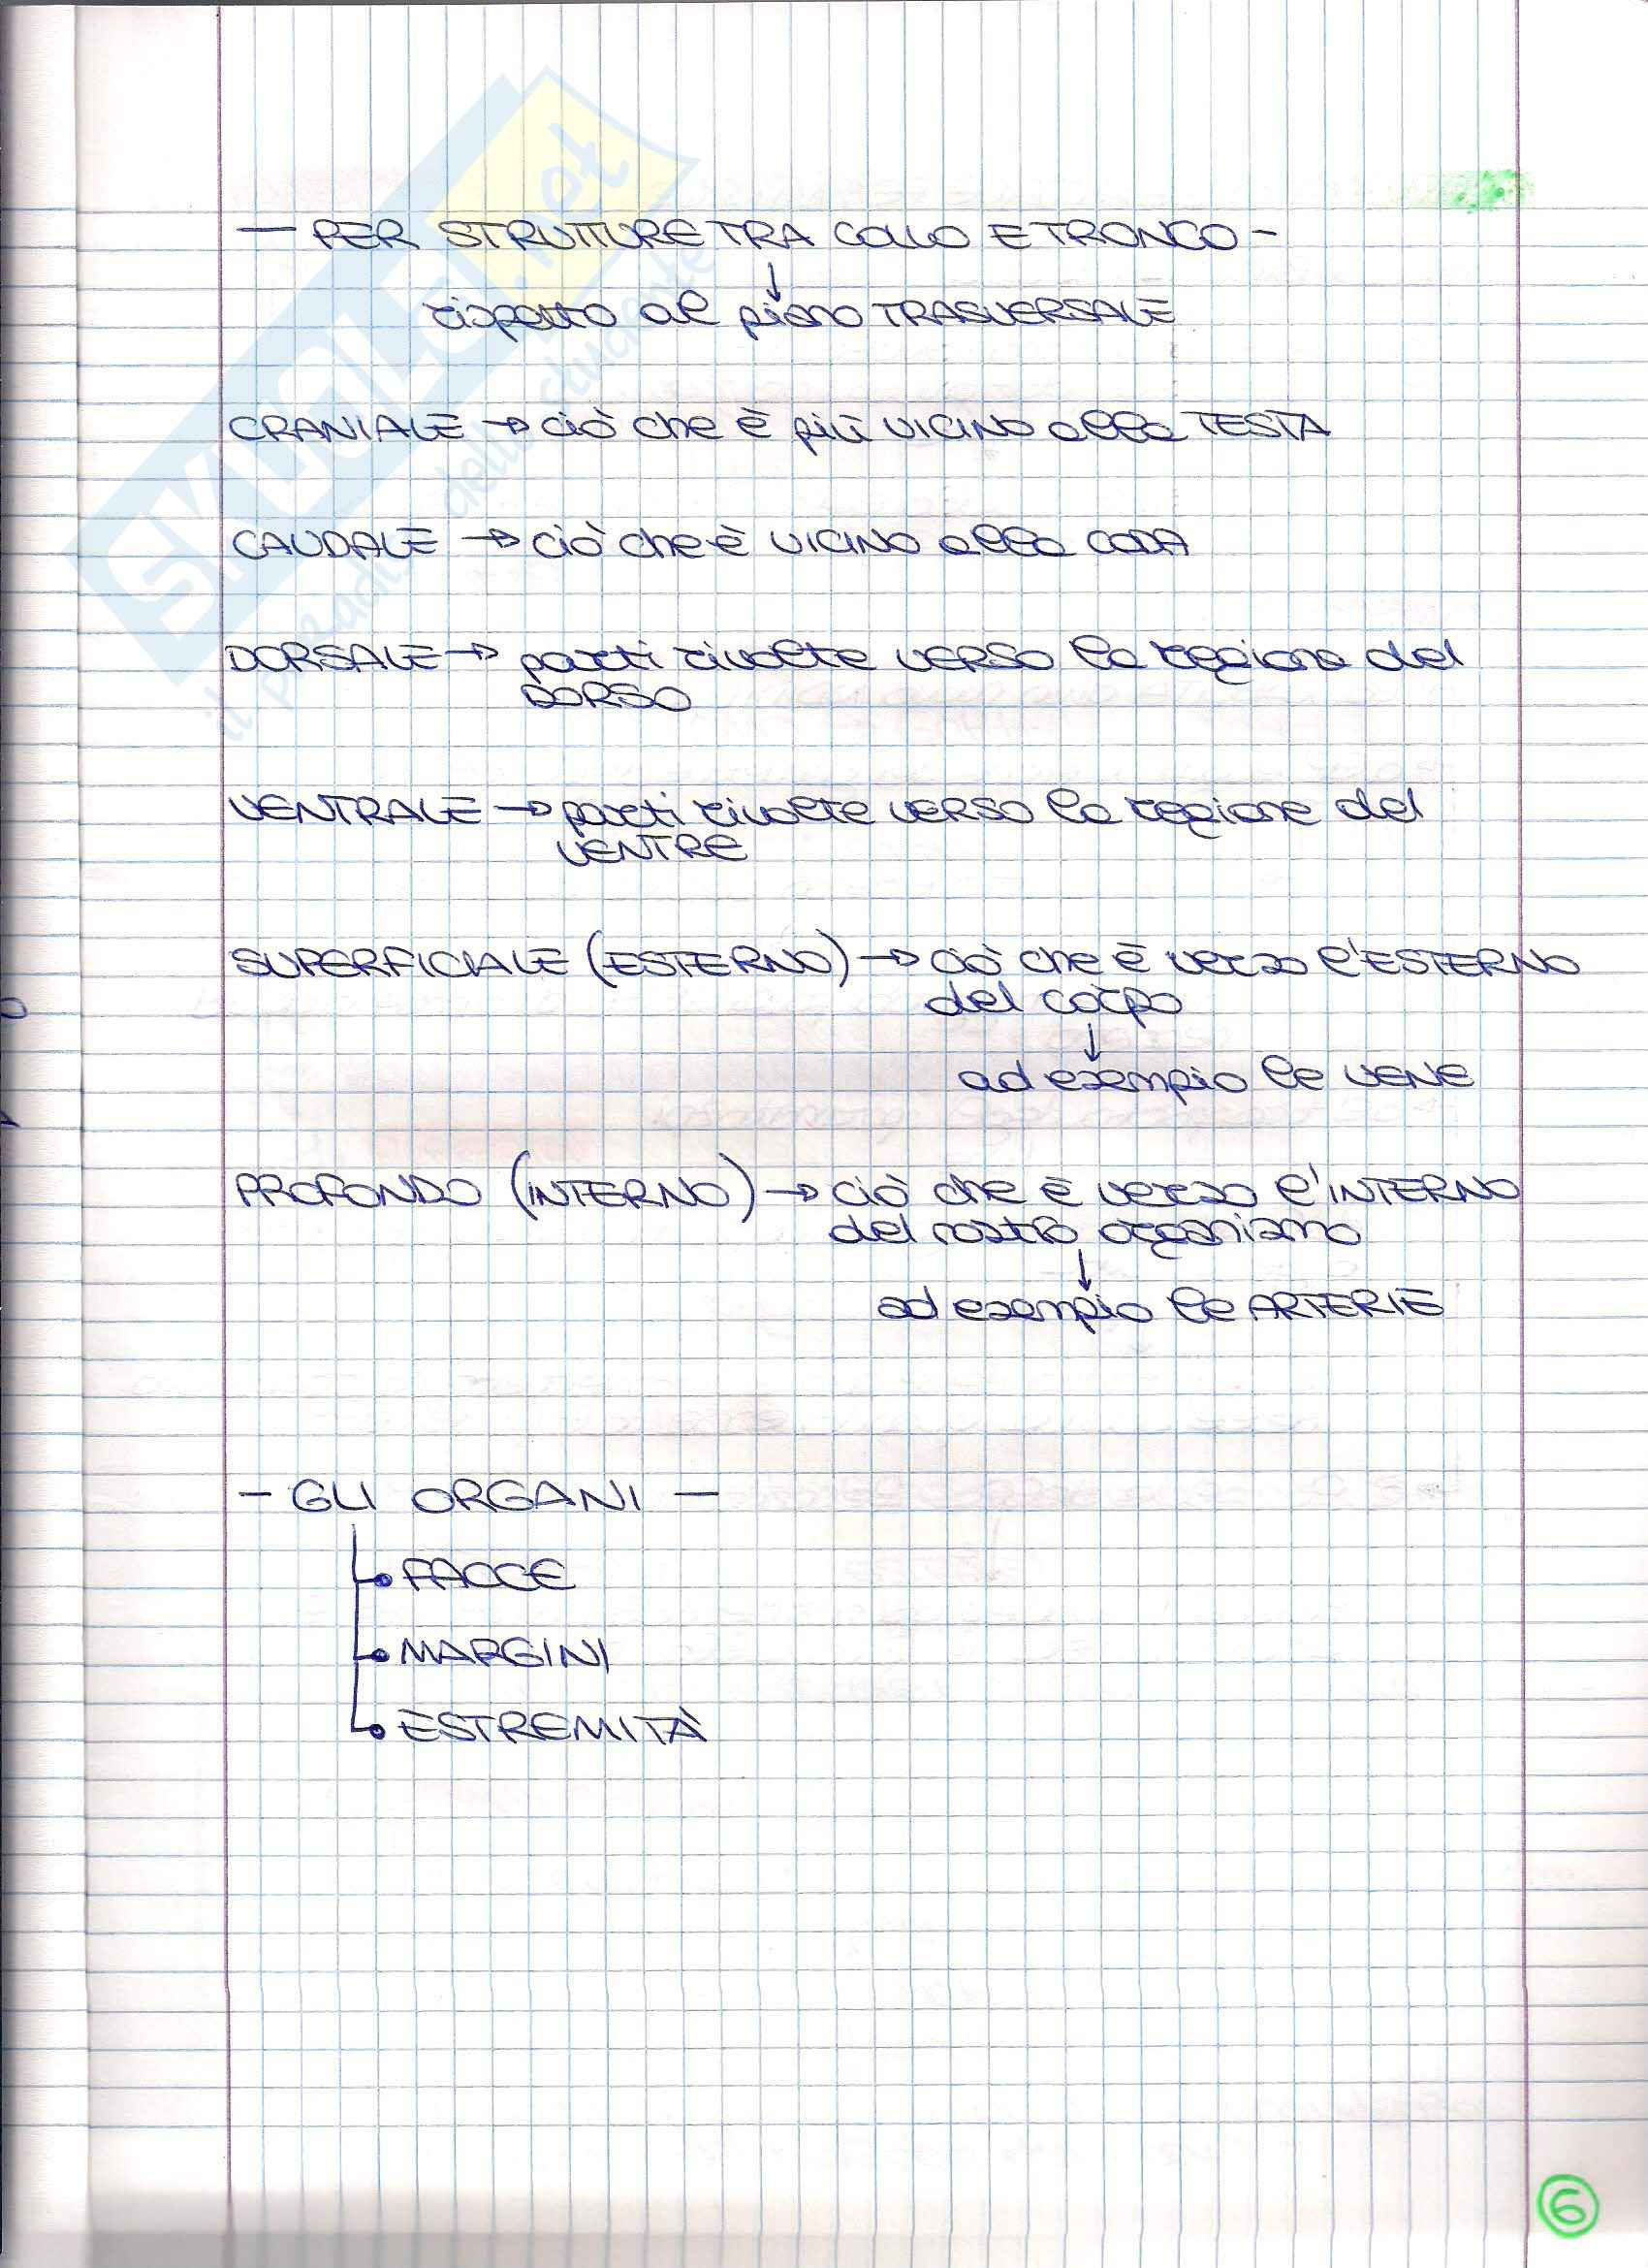 — PER STRUTTURE TRA COLLO E TRONCO -
↓
rispetto al piano TRASVERSALE
CRANIALE → ciò che è più VICINO alla TESTA
CAUDALE → ciò che è VICINO alla CODA
DORSALE → parti rivolte VERSO la regione del
DORSO
VENTRALE → parti rivolte VERSO la regione del
VENTRE
SUPERFICIALE (ESTERNO) → ciò che è verso l'ESTERNO
del corpo
↓
ad esempio le VENE
PROFONDO (INTERNO) → ciò che è verso l'INTERNO
del nostro organismo
↓
ad esempio le ARTERIE
- GLI ORGANI —
FACCE
MARGINI
ESTREMITÀ
6
SKUOLA.net
il paradiso dello studente